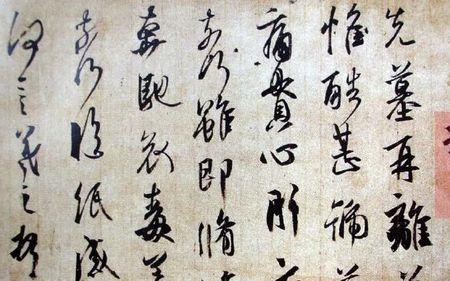 先墓再離
惟酷甚號
痛貫心肝
奈何雖即脩
奔馳哀毒益
奈何臨紙感
何言羲之頓